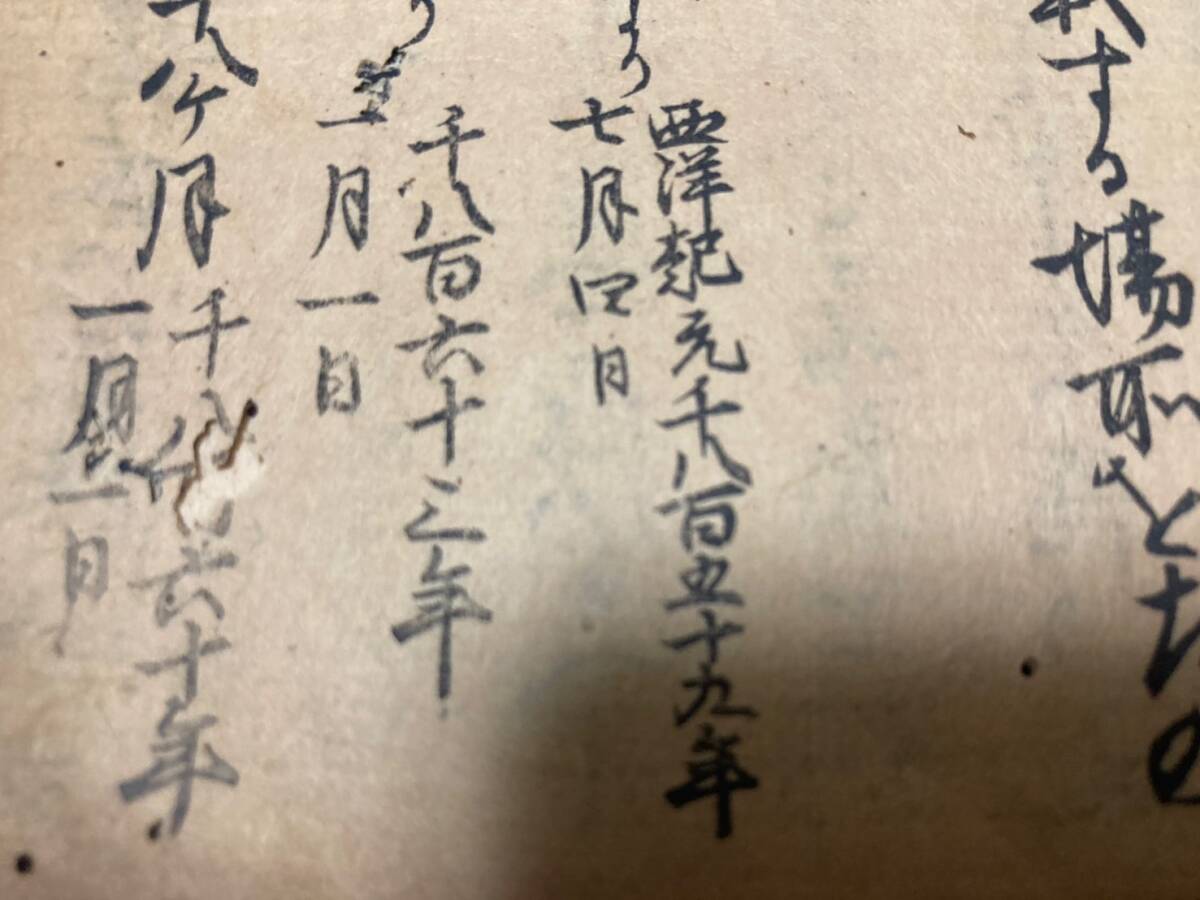 する場所を左の
より
西洋紀元千八百五十九年
七月四日
千八百六十三年
一月一日
八ケ月
千八百六十年
一月一日